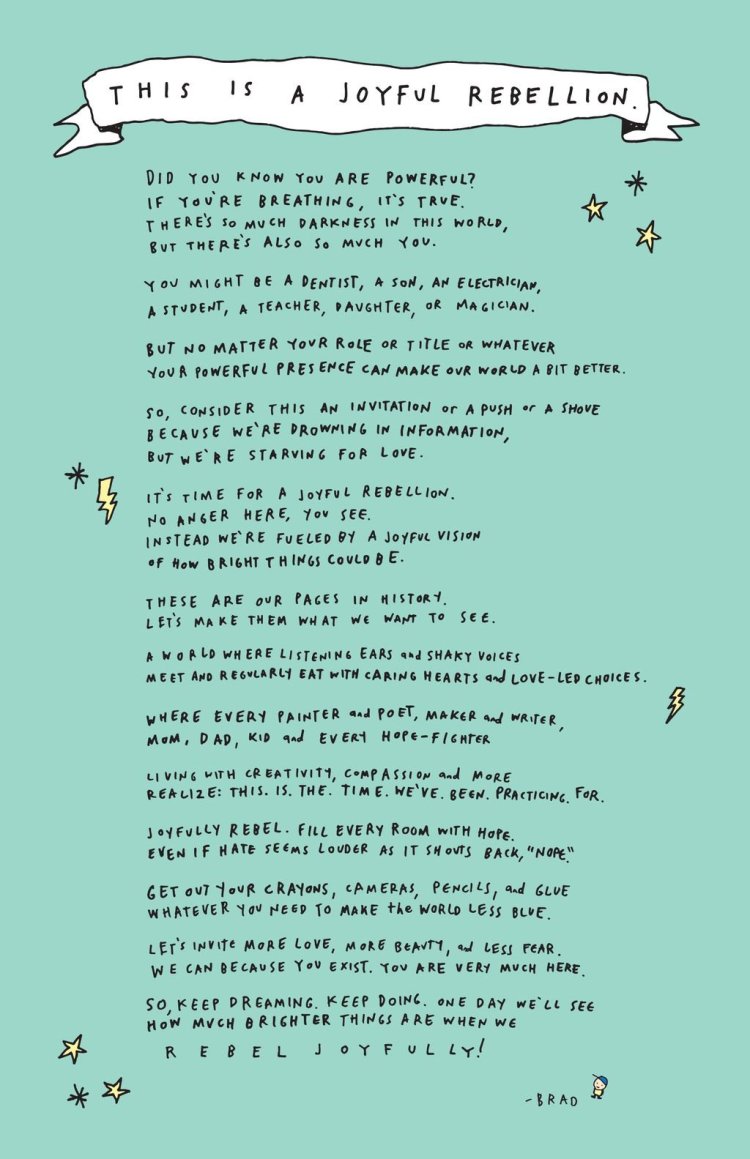 THIS IS A JOYFUL REBELLION.
DID YOU KNOW YOU ARE POWERFUL?
IF YOU'RE BREATHING, IT'S TRUE.
THERE'S SO MUCH DARKNESS IN THIS WORLD,
BUT THERE'S ALSO SO MUCH YOU.
YOU MIGHT BE A DENTIST, A SON, AN ELECTRICIAN,
A STUDENT, A TEACHER, DAUGHTER, OR MAGICIAN.
BUT NO MATTER YOUR ROLE OR TITLE OR WHATEVER
YOUR POWERFUL PRESENCE CAN MAKE OUR WORLD A BIT BETTER.
SO, CONSIDER THIS AN INVITATION or A PUSH or A SHOVE
BECAUSE WE'RE DROWNING IN INFORMATION,
BUT WE'RE STARVING FOR LOVE.
IT'S TIME FOR A JOYFUL REBELLION.
NO ANGER HERE, YOU SEE.
INSTEAD WE'RE FUELED BY A JOYFUL VISION
OF HOW BRIGHT THINGS COULD BE.
THESE ARE OUR PAGES IN HISTORY.
LET'S MAKE THEM WHAT WE WANT TO SEE.
A WORLD WHERE LISTENING EARS and SHAKY VOICES
MEET AND REGULARLY EAT WITH CARING HEARTS and LOVE-LED CHOICES.
WHERE EVERY PAINTER and POET, MAKER and WRITER,
MOM, DAD, KID and EVERY HOPE-FIGHTER
LIVING WITH CREATIVITY, COMPASSION and MORE
REALIZE: THIS. IS. THE. TIME. WE'VE. BEEN. PRACTICING. FOR.
JOYFULLY REBEL. FILL EVERY ROOM WITH HOPE.
EVEN IF HATE SEEMS LOUDER AS IT SHOUTS BACK, "NOPE."
GET OUT YOUR CRAYONS, CAMERAS, PENCILS, and GLUE
WHATEVER YOU NEED TO MAKE the WORLD LESS BLUE.
LET'S INVITE MORE LOVE, MORE BEAUTY, and LESS FEAR.
WE CAN BECAUSE YOU EXIST. YOU ARE VERY MUCH HERE.
SO, KEEP DREAMING. KEEP DOING. ONE DAY WE'LL SEE
HOW MUCH BRIGHTER THINGS ARE WHEN WE
REBEL JOYFULLY!
-BRAD